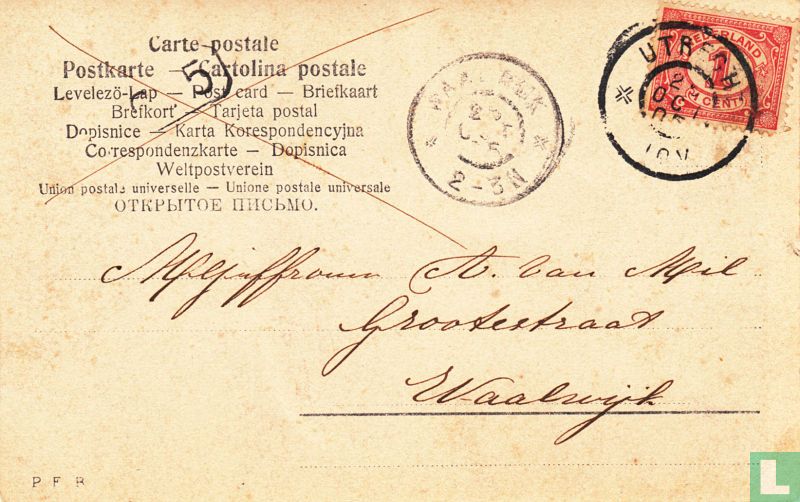 Carte postale
Postkarte — Cartolina postale
Levelezö-Lap — Post card — Briefkaart
Brefkort — Tarjeta postal
Dopisnice — Karta Korespondencyjna
Correspondenzkarte — Dopisnica
Weltpostverein
Union postale universelle — Unione postale universale
ОТКРЫТОЕ ПИСЬМО.
5
WAALWIJK
2-3N
UTRECHT
OCT
05
10V
NEDERLAND
1 CENT
Mejuffrouw A. van Mil
Grootestraat
Waalwijk
P F B
L
© LastDodo